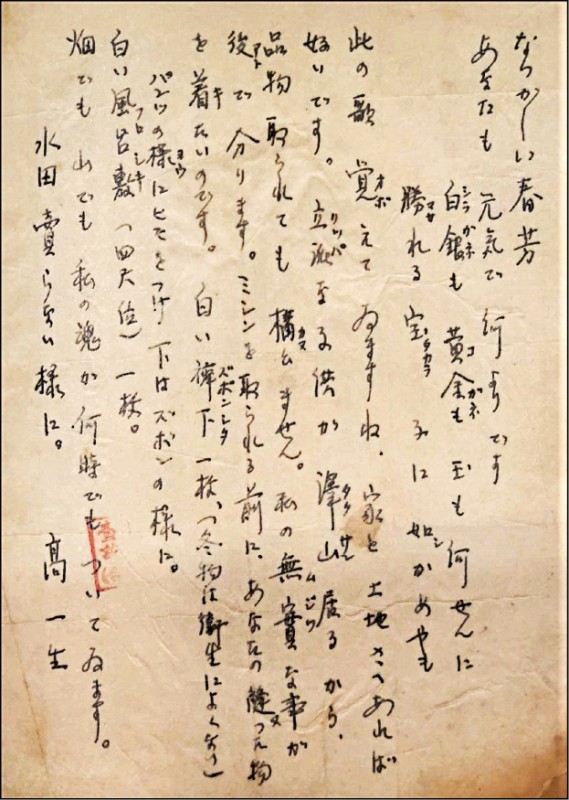 なつかしい春芳
あなたも 元気で 何よりです
白銀も 黄金も 玉も 何せんに
勝れる 宝 子に 如かめやも
此の歌 覚えてゐますね、 家と 土地さへあれば
好いです。 立派な子供が 澤山居るから、
品物 取られても 構ひません。 私の 無實な事が
後で 分ります。 ミシンを取られる前に、あなたの縫った物
を 着たいのです。 白い 褲下 一枚、(冬物は衛生によくない)
パンツの様にヒモをつけ 下は ズボンの様に。
白い風呂敷(四尺位)一枚。
畑でも 山でも 私の魂が 何時でも ついてゐます。
水田 賣らない様に。
高 一生